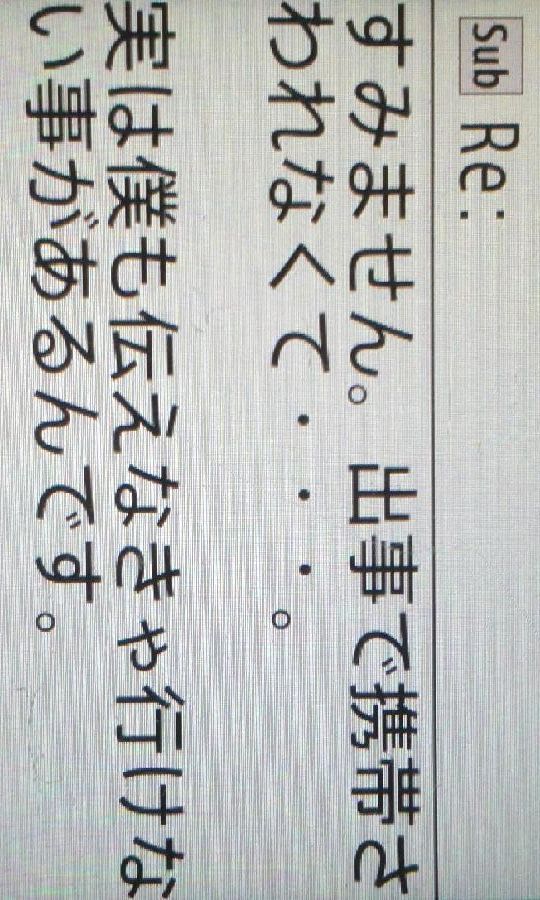 Sub Re:
すみません。出事で携帯さ
われなくて・・・。
実は僕も伝えなきゃ行けな
い事があるんです。